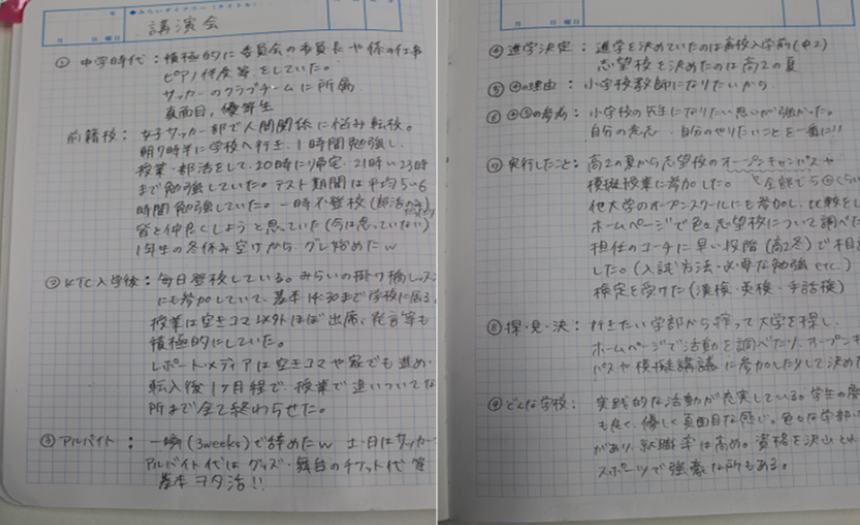 みらいダイアリー(タイトル)
月 日 曜日
講演会
① 中学時代：積極的に委員会の委員長や係の仕事
ピアノ伴奏等をしていた。
サッカーのクラブチームに所属
真面目，優等生
前籍校：女子サッカー部で人間関係に悩み転校。
朝7時半に学校へ行き，1時間勉強し，
授業・部活をして，20時に帰宅．21時〜23時
まで勉強していた。テスト期間は平均5い6
時間勉強していた。一時不登校(部活のみ)
皆と仲良くしようと思っていた(今は思っていない)
1年生の冬休み空けから，グレ始めたw
② KTC入学後：毎日登校している。みらいの掛け橋レッスン
にも参加していて，基本14:30まで学校に居る
授業は空きコマ以外ほぼ出席，発言等も
積極的にしていた。
レポート・メディアは空きコマや家でも進め，
転入後1ヶ月程で，授業で追いついてな
所まで全て終わらせた。
③ アルバイト：一瞬(3weeks)で辞めたw 土・日はサッカー
アルバイト代はグッズ・舞台のチケット代 等
基本ヲタ活!!
月 日 曜日
④ 進学決定：進学を決めていたのは高校入学前(中2)
志望校を決めたのは高2の夏
⑤ ④の理由：小学校教師になりたいから
⑥ ④⑤の参考：小学校の先生になりたい思いが強かった。
自分の意志，自分のやりたいことを一番に!!
⑦ 実行したこと：高2の夏から志望校のオープンキャンパスや
模擬授業に参加した。 全部で5回くらい
他大学のオープンスクールにも参加し，比較をし
ホームページで色々志望校について調べた
担任のコーチに早い段階(高2冬)で相
した。(入試方法・必要な勉強 etc.)
検定を受けた(漢検・英検・手話検)
⑧ 探・見・決：行きたい学部から搾って大学を探し，
ホームページで活動を調べたり，オープンキ
パスや模擬講義に参加したりして決めた
⑨ どんな学校：実践的な活動が充実している。学生の
も良く，優しく真面目な感じ。色々な学部
があり，就職率は高め。資格を沢山とれ
スポーツで強豪な所もある。